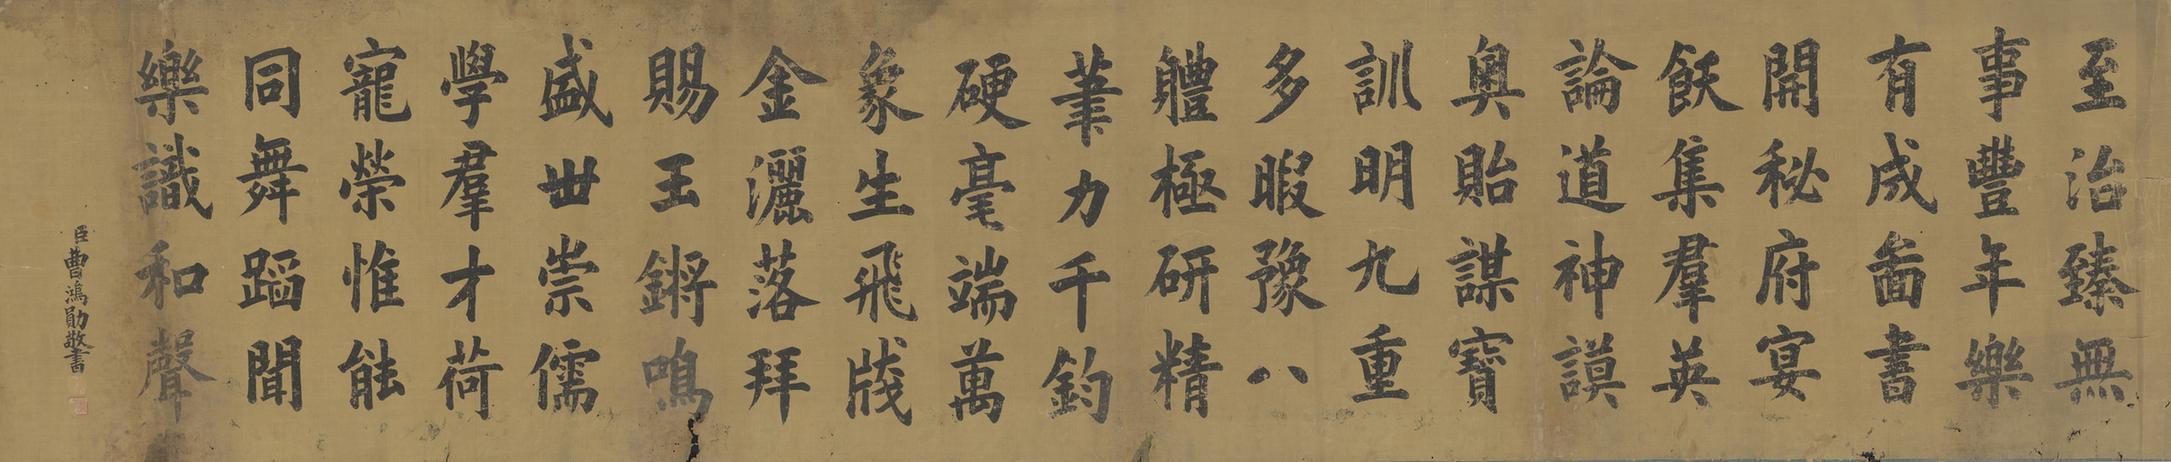 至治臻無
事豐年樂
有成啚書
開秘府宴
飫集羣英
論道神謨
奥貽謀寶
訓明九重
多暇豫八
軆極研精
筆力千鈞
硬毫端萬
象生飛牋
金灑落拜
賜玉鏘鳴
盛世崇儒
學羣才荷
寵榮惟能
同舞蹈聞
樂識和聲
臣曹鴻勛敬書